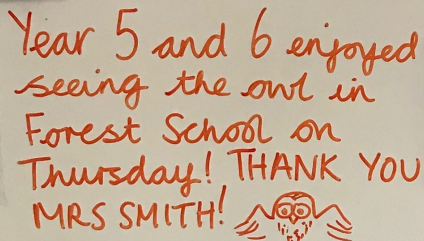 Year 5 and 6 enjoyed
seeing the owl in
Forest School on
Thursday! THANK YOU
MRS SMITH!